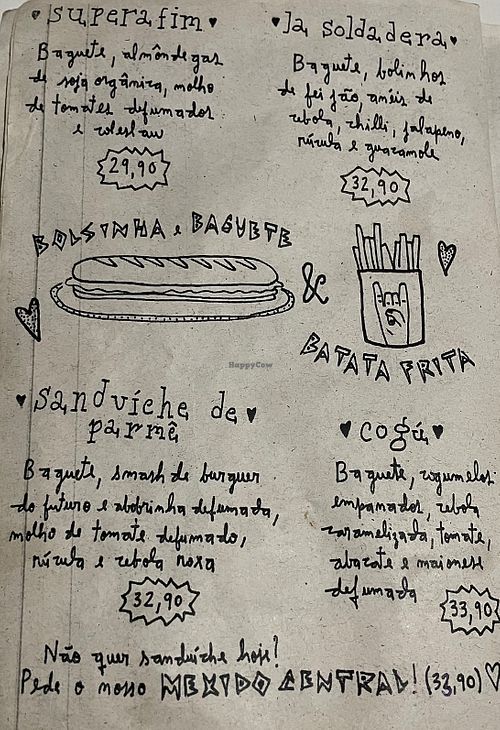 superafim
Baguete, almôndegas
de soja orgânica, molho
de tomates defumados
e coleslau
29,90
la soldadera
Baguete, bolinhos
de feijão, anéis de
cebola, chilli, jalapeno,
rúcula e guacamole
32,90
BOLSINHA e BAGUETE
&
BATATA FRITA
HappyCow
sanduíche de
parmê
Baguete, smash de burguer
do futuro e abobrinha defumada,
molho de tomate defumado,
rúcula e cebola roxa
32,90
cogú
Baguete, cogumelos
empanados, cebola
caramelizada, tomate,
abacate e maionese
defumada
33,90
Não quer sanduíche hoje?
Pede o nosso MEXIDO CENTRAL! (33,90)